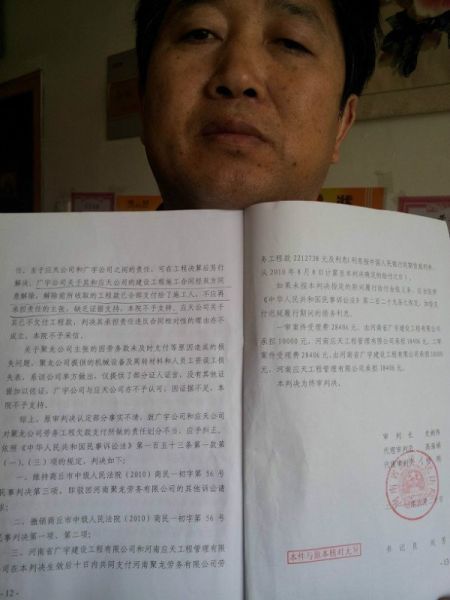 任。至于应天公司和广宇公司之间的责任，可在工程决算后另行
解决。广宇公司关于其和应天公司的建设工程施工合同经双方同
意解除，解除前所收取的工程款已全部支付给了施工人，不应再
承担责任的主张，缺乏证据支持，本院不予支持。应天公司关于
其已不欠付工程款，判决其承担责任违反合同相对性的理由亦不
成立，本院不予采信。
关于聚龙公司主张的因劳务款未及时支付等原因造成的损
失问题。聚龙公司提供的机械设备及周转材料和人员工资误工损
失表，系该公司单方做出，仅提供了部分证人证言，没有其他证
据加以佐证，广宇公司与应天公司亦不予认可，因证据不足，本
院不予支持。
综上，原审判决认定部分事实不清，致广宇公司和应天公司
对聚龙公司劳务工程欠款支付所做的责任划分不当，应予纠正。
依照《中华人民共和国民事诉讼法》第一百五十三条第一款第
(一)、(三)项的规定，判决如下：
一、维持商丘市中级人民法院(2010)商民一初字第56号
民事判决第三项，即驳回河南聚龙劳务有限公司的其他诉讼请
求；
二、撤销商丘市中级人民法院(2010)商民一初字第56号
民事判决第一项、第二项；
三、河南省广宇建设工程有限公司和河南应天工程管理有限
公司在本判决生效后十日内共同支付河南聚龙劳务有限公司劳
-12-
务工程款2212738元及利息(利息按中国人民银行同期贷款利率，
从2010年4月8日计算至本判决确定的给付之日)。
如果未按本判决指定的期间履行给付金钱义务，应当依照
《中华人民共和国民事诉讼法》第二百二十九条之规定，加倍支
付迟延履行期间的债务利息。
一审案件受理费28406元，由河南省广宇建设工程有限公司
承担10000元，河南应天工程管理有限公司承担18406元。二审
案件受理费28406元，由河南省广宇建设工程有限公司承担10000
元，河南应天工程管理有限公司承担18406元。
本判决为终审判决。
审 判 长
代理审判员
代理审判员
本件与原本核对无异
书 记 员